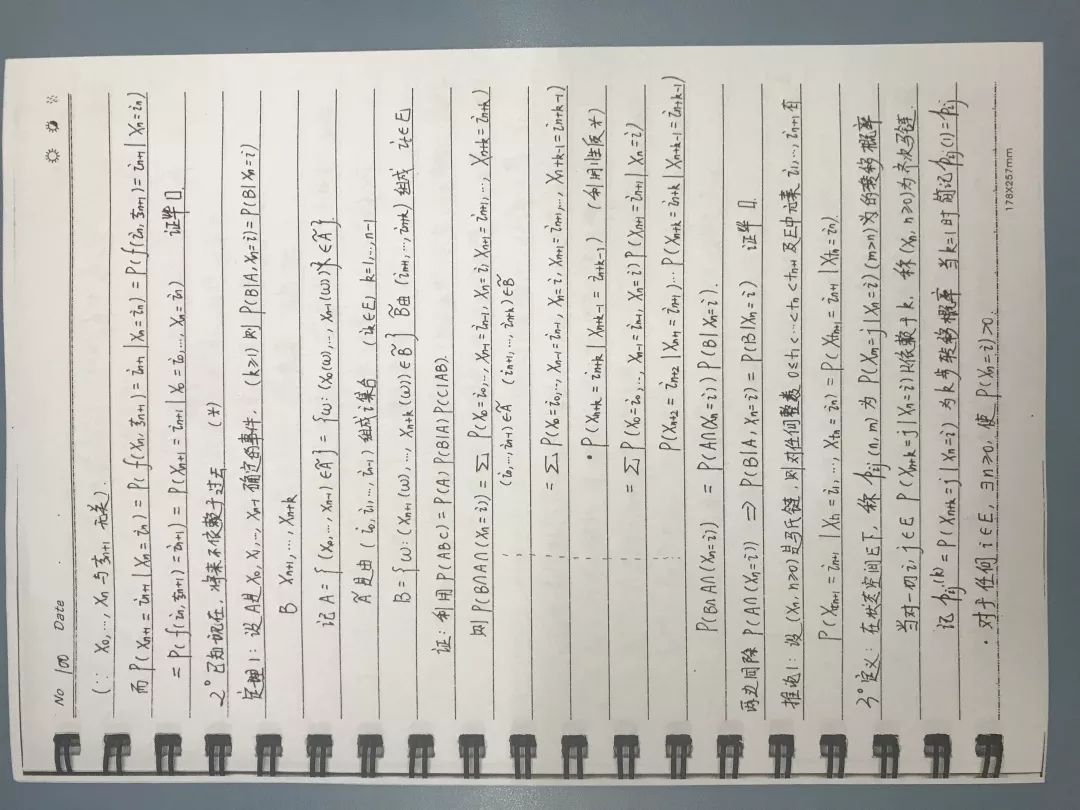 No 100 Date
(∵ X₀,…,Xₙ 与 ξₙ₊₁ 无关).
而 P(Xₙ₊₁=iₙ₊₁|Xₙ=iₙ)=P(f(Xₙ,ξₙ₊₁)=iₙ₊₁|Xₙ=iₙ)=P(f(iₙ,ξₙ₊₁)=iₙ₊₁|Xₙ=iₙ)
=P(f(iₙ,ξₙ₊₁)=iₙ₊₁)=P(Xₙ₊₁=iₙ₊₁|X₀=i₀,…,Xₙ=iₙ) 证毕 □.
2° 已知现在,将来不依赖于过去 (*)
定理1:设A是X₀,X₁,…,Xₙ₋₁确定的事件, (k≥1) 则 P(B|A,Xₙ=i)=P(B|Xₙ=i)
B Xₙ₊₁,…,Xₙ₊ₖ
记 A={(X₀,…,Xₙ₋₁)∈Ã}={ω:(X₀(ω),…,Xₙ₋₁(ω))∈Ã}
Ã是由(i₀,i₁,…,iₙ₋₁)组成i集合 (iₖ∈E) k=1,…,n-1
B={ω:(Xₙ₊₁(ω),…,Xₙ₊ₖ(ω))∈B̃} B̃由(iₙ₊₁,…,iₙ₊ₖ)组成 iₖ∈E
证:利用P(ABC)=P(A)P(B|A)P(C|AB).
则 P(B∩A∩(Xₙ=i))=∑ P(X₀=i₀,…,Xₙ₋₁=iₙ₋₁,Xₙ=i,Xₙ₊₁=iₙ₊₁,…,Xₙ₊ₖ=iₙ₊ₖ)
(i₀,…,iₙ₋₁)∈Ã (iₙ₊₁,…,iₙ₊ₖ)∈B̃
=∑P(X₀=i₀,…,Xₙ₋₁=iₙ₋₁,Xₙ=i,Xₙ₊₁=iₙ₊₁,…,Xₙ₊ₖ₋₁=iₙ₊ₖ₋₁)
·P(Xₙ₊ₖ=iₙ₊ₖ|Xₙ₊ₖ₋₁=iₙ₊ₖ₋₁) (利用性质*)
=∑P(X₀=i₀,…,Xₙ₋₁=iₙ₋₁,Xₙ=i)P(Xₙ₊₁=iₙ₊₁|Xₙ=i)
P(Xₙ₊₂=iₙ₊₂|Xₙ₊₁=iₙ₊₁)…P(Xₙ₊ₖ=iₙ₊ₖ|Xₙ₊ₖ₋₁=iₙ₊ₖ₋₁)
P(B∩A∩(Xₙ=i)) = P(A∩(Xₙ=i))P(B|Xₙ=i).
两边同除P(A∩(Xₙ=i)) ⇒ P(B|A,Xₙ=i)=P(B|Xₙ=i) 证毕 □.
推论1:设(Xₙ,n≥0)是马氏链,则对任何整数 0≤t₁<…<tₙ<tₙ₊₁及E中元素i₁,…,iₙ₊₁有
P(Xₜₙ₊₁=iₙ₊₁|Xₜ₁=i₁,…,Xₜₙ=iₙ)=P(Xₜₙ₊₁=iₙ₊₁|Xₜₙ=iₙ)
3°定义:在状态空间E下,称pᵢⱼ(n,m)为P(Xₘ=j|Xₙ=i)(m>n)为的转移概率
当对一切i,j∈E P(Xₙ₊ₖ=j|Xₙ=i)只依赖于k,称(Xₙ,n≥0)为齐次马链.
记pᵢⱼ⁽ᵏ⁾=P(Xₙ₊ₖ=j|Xₙ=i)为k步转移概率 当k=1时简记pᵢⱼ(1)=pᵢⱼ
·对于任何i∈E,∃n≥0,使P(Xₙ=i)>0.
178X257mm